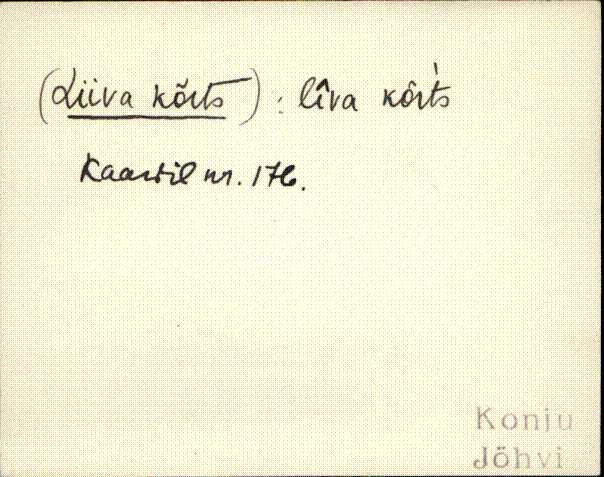 (Liiva kõrts) : lîva kõŕts
Kaardil nr. 176.
Konju
Jõhvi